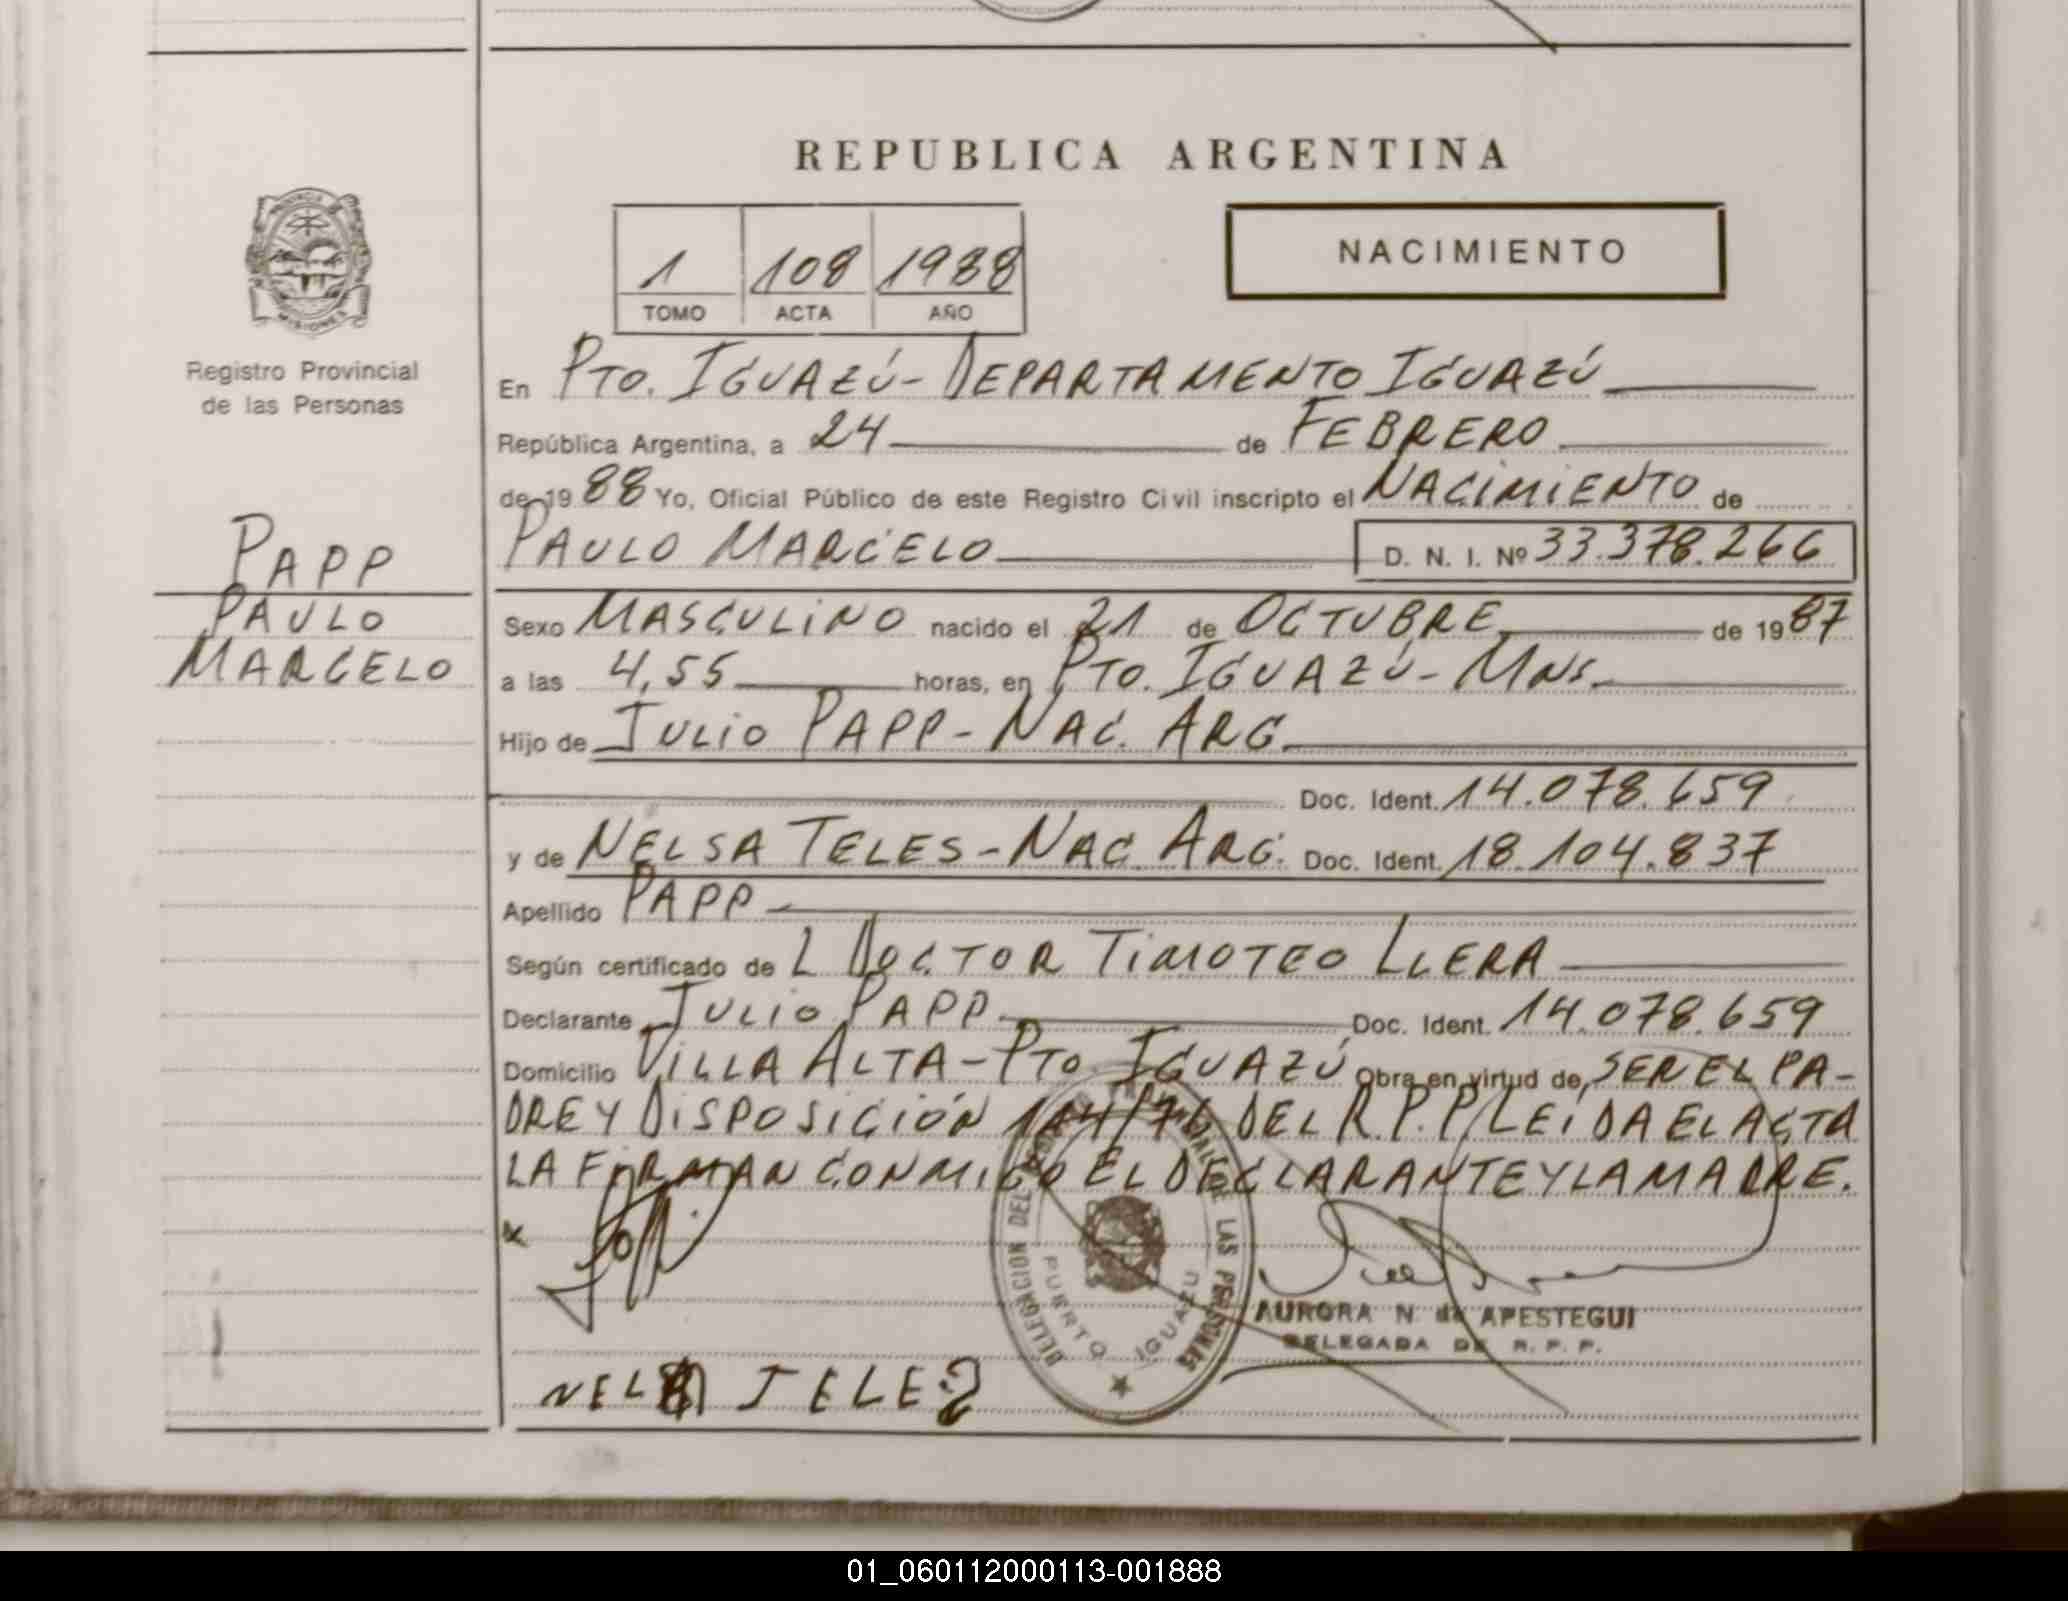 REPUBLICA ARGENTINA
PROVINCIA DE
MISIONES
Registro Provincial
de las Personas
1 108 1988
TOMO ACTA AÑO
NACIMIENTO
En PTO. IGUAZÚ - DEPARTAMENTO IGUAZÚ
República Argentina, a 24 de FEBRERO
de 1988 Yo, Oficial Público de este Registro Civil inscripto el NACIMIENTO de
PAPP
PAULO
MARCELO
PAULO MARCELO D. N. I. Nº 33.378.266
Sexo MASCULINO nacido el 21 de OCTUBRE de 1987
a las 4,55 horas, en PTO. IGUAZÚ - MNS.
Hijo de JULIO PAPP - NAC. ARG.
Doc. Ident. 14.078.659
y de NELSA TELES - NAC. ARG. Doc. Ident. 18.104.837
Apellido PAPP
Según certificado de L DOCTOR TIMOTEO LLERA
Declarante JULIO PAPP Doc. Ident. 14.078.659
Domicilio VILLA ALTA - PTO. IGUAZÚ Obra en virtud de SER EL PA-
DRE Y DISPOSICIÓN 114/76 DEL R.P.P. LEÍDA EL ACTA
LA FIRMAN CONMIGO EL DECLARANTE Y LA MADRE.
x
DELEGACION DEL REGISTRO PROVINCIAL DE LAS PERSONAS
PUERTO IGUAZU
AURORA N. de APESTEGUI
DELEGADA DE R. P. P.
TELES
01_060112000113-001888